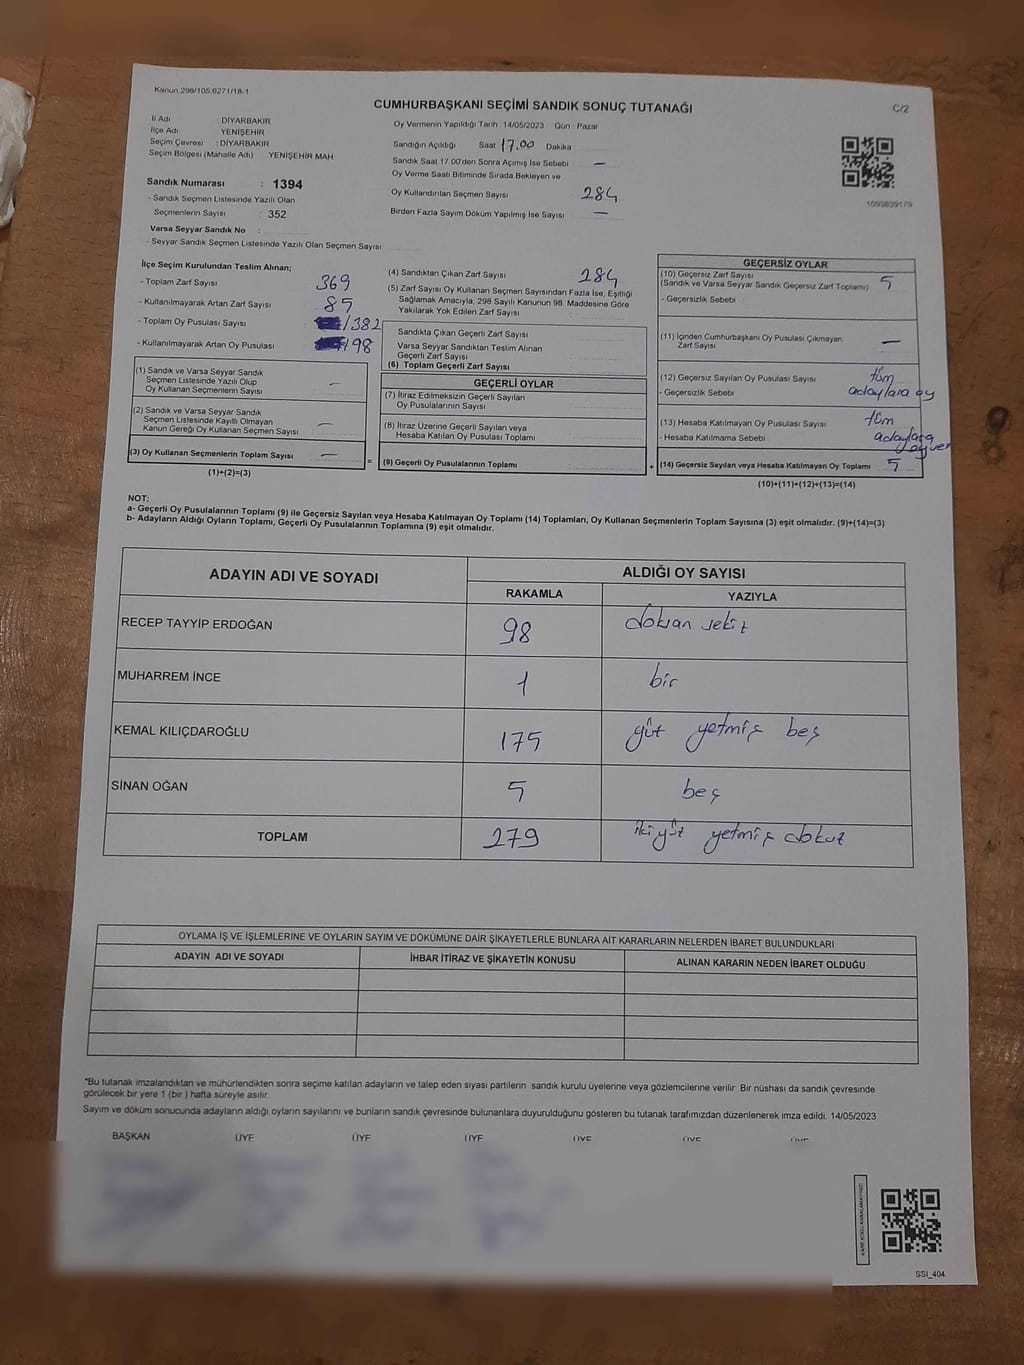 Kanun 298/105:6271/18-1
CUMHURBAŞKANI SEÇİMİ SANDIK SONUÇ TUTANAĞI
C/2
İl Adı : DİYARBAKIR
İlçe Adı : YENİŞEHİR
Seçim Çevresi : DİYARBAKIR
Seçim Bölgesi (Mahalle Adı) YENİŞEHİR MAH
Sandık Numarası : 1394
- Sandık Seçmen Listesinde Yazılı Olan
Seçmenlerin Sayısı : 352
Varsa Seyyar Sandık No :
- Seyyar Sandık Seçmen Listesinde Yazılı Olan Seçmen Sayısı
Oy Vermenin Yapıldığı Tarih :14/05/2023 Gün : Pazar
Sandığın Açıldığı Saat 17.00 Dakika
Sandık Saat 17.00'den Sonra Açımış İse Sebebi —
Oy Verme Saati Bitiminde Sırada Bekleyen ve
Oy Kullandırılan Seçmen Sayısı : 284
Birden Fazla Sayım Döküm Yapılmış İse Sayısı —
1093839179
İlçe Seçim Kurulundan Teslim Alınan;
- Toplam Zarf Sayısı : 369
- Kullanılmayarak Artan Zarf Sayısı : 85
- Toplam Oy Pusulası Sayısı /382
- Kullanılmayarak Artan Oy Pusulası : 198
(1) Sandık ve Varsa Seyyar Sandık
Seçmen Listesinde Yazılı Olup
Oy Kullanan Seçmenlerin Sayısı : —
(2) Sandık ve Varsa Seyyar Sandık
Seçmen Listesinde Kayıtlı Olmayan
Kanun Gereği Oy Kullanan Seçmen Sayısı : —
(3) Oy Kullanan Seçmenlerin Toplam Sayısı : —
(1)+(2)=(3)
(4) Sandıktan Çıkan Zarf Sayısı : 284
(5) Zarf Sayısı Oy Kullanan Seçmen Sayısından Fazla İse, Eşitliği
Sağlamak Amacıyla, 298 Sayılı Kanunun 98. Maddesine Göre
Yakılarak Yok Edilen Zarf Sayısı :
Sandıkta Çıkan Geçerli Zarf Sayısı :
Varsa Seyyar Sandıktan Teslim Alınan
Geçerli Zarf Sayısı :
(6) Toplam Geçerli Zarf Sayısı
GEÇERLİ OYLAR
(7) İtiraz Edilmeksizin Geçerli Sayılan
Oy Pusulalarının Sayısı :
(8) İtiraz Üzerine Geçerli Sayılan veya
Hesaba Katılan Oy Pusulası Toplamı :
= (9) Geçerli Oy Pusulalarının Toplamı : +
GEÇERSİZ OYLAR
(10) Geçersiz Zarf Sayısı : 5
(Sandık ve Varsa Seyyar Sandık Geçersiz Zarf Toplamı)
- Geçersizlik Sebebi :
(11) İçinden Cumhurbaşkanı Oy Pusulası Çıkmayan
Zarf Sayısı : —
(12) Geçersiz Sayılan Oy Pusulası Sayısı : tüm
- Geçersizlik Sebebi : adaylara oy
(13) Hesaba Katılmayan Oy Pusulası Sayısı : tüm
- Hesaba Katılmama Sebebi : adaylara
oy ver
(14) Geçersiz Sayılan veya Hesaba Katılmayan Oy Toplamı : 5
(10)+(11)+(12)+(13)=(14)
NOT:
a- Geçerli Oy Pusulalarının Toplamı (9) ile Geçersiz Sayılan veya Hesaba Katılmayan Oy Toplamı (14) Toplamları, Oy Kullanan Seçmenlerin Toplam Sayısına (3) eşit olmalıdır. (9)+(14)=(3)
b- Adayların Aldığı Oyların Toplamı, Geçerli Oy Pusulalarının Toplamına (9) eşit olmalıdır.
ADAYIN ADI VE SOYADI
ALDIĞI OY SAYISI
RAKAMLA YAZIYLA
RECEP TAYYİP ERDOĞAN 98 doksan sekiz
MUHARREM İNCE 1 bir
KEMAL KILIÇDAROĞLU 175 yüz yetmiş beş
SİNAN OĞAN 5 beş
TOPLAM 279 iki yüz yetmiş dokuz
OYLAMA İŞ VE İŞLEMLERİNE VE OYLARIN SAYIM VE DÖKÜMÜNE DAİR ŞİKAYETLERLE BUNLARA AİT KARARLARIN NELERDEN İBARET BULUNDUKLARI
ADAYIN ADI VE SOYADI İHBAR İTİRAZ VE ŞİKAYETİN KONUSU ALINAN KARARIN NEDEN İBARET OLDUĞU
*Bu tutanak imzalandıktan ve mühürlendikten sonra seçime katılan adayların ve talep eden siyasi partilerin sandık kurulu üyelerine veya gözlemcilerine verilir. Bir nüshası da sandık çevresinde
görülecek bir yere 1 (bir ) hafta süreyle asılır.
Sayım ve döküm sonucunda adayların aldığı oyların sayılarını ve bunların sandık çevresinde bulunanlara duyurulduğunu gösteren bu tutanak tarafımızdan düzenlenerek imza edildi. 14/05/2023
BAŞKAN ÜYE ÜYE ÜYE ÜYE ÜYE ÜYE
SSI_404